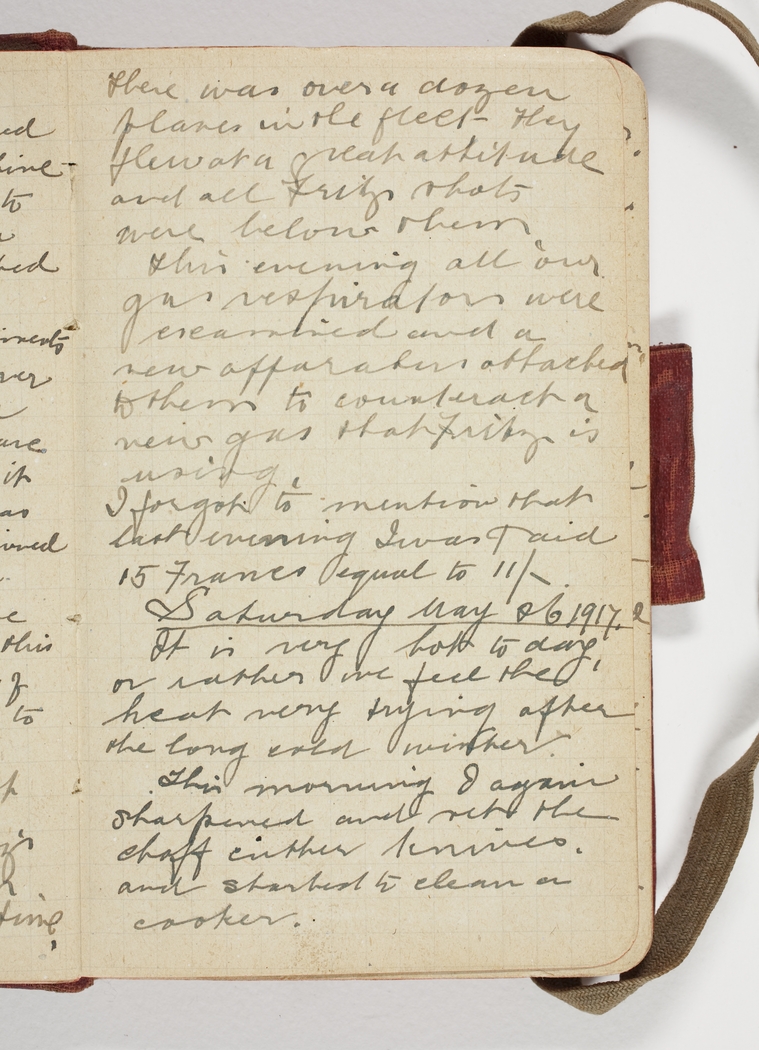 ed
hine-
to
bed
ments
ver
are
it
as
ined
e
this
of
to
time
there was over a dozen
planes in the fleet. They
flew at a great attitude
and all Fritz shots
were below them
This evening all our
gas respirators were
examined and a
new apparatus attached
to them to counteract a
new gas that Fritz is
using.
I forgot to mention that
last evening I was paid
15 Francs equal to 11/-
Saturday May 26 1917.
It is very hot to day,
or rather we feel the
heat very trying after
the long cold winter.
This morning I again
sharpened and set the
chaff cutter knives.
and started to clean a
cooker.